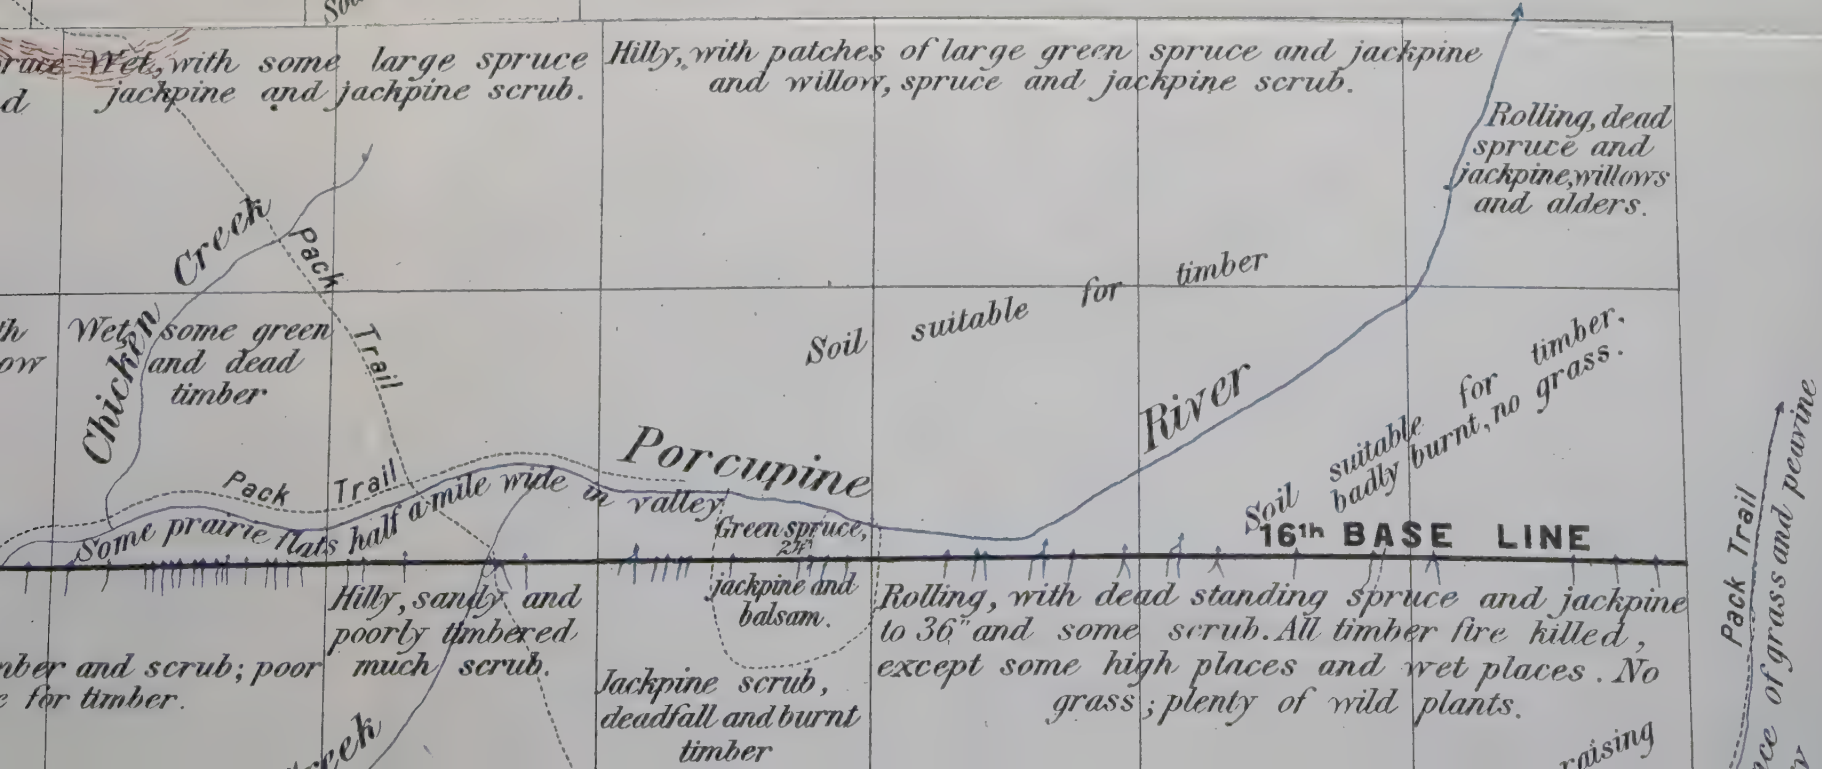 Wet, with some large spruce
jackpine and jackpine scrub.
Hilly, with patches of large green spruce and jackpine
and willow, spruce and jackpine scrub.
d
Rolling, dead
spruce and
jackpine, willows
and alders.
Chicken Creek
Pack Trail
Wet, some green
and dead
timber
Soil suitable for timber
Soil suitable for timber,
badly burnt, no grass.
Porcupine River
Pack Trail
Some prairie flats half a mile wide in valley
Green spruce,
24"
jackpine and
balsam.
16th BASE LINE
Hilly, sandy and
poorly timbered
much scrub.
Rolling, with dead standing spruce and jackpine
to 36" and some scrub. All timber fire killed,
except some high places and wet places. No
grass; plenty of wild plants.
and scrub; poor
for timber.
Jackpine scrub,
deadfall and burnt
timber
Pack Trail
of grass and peavine
raising